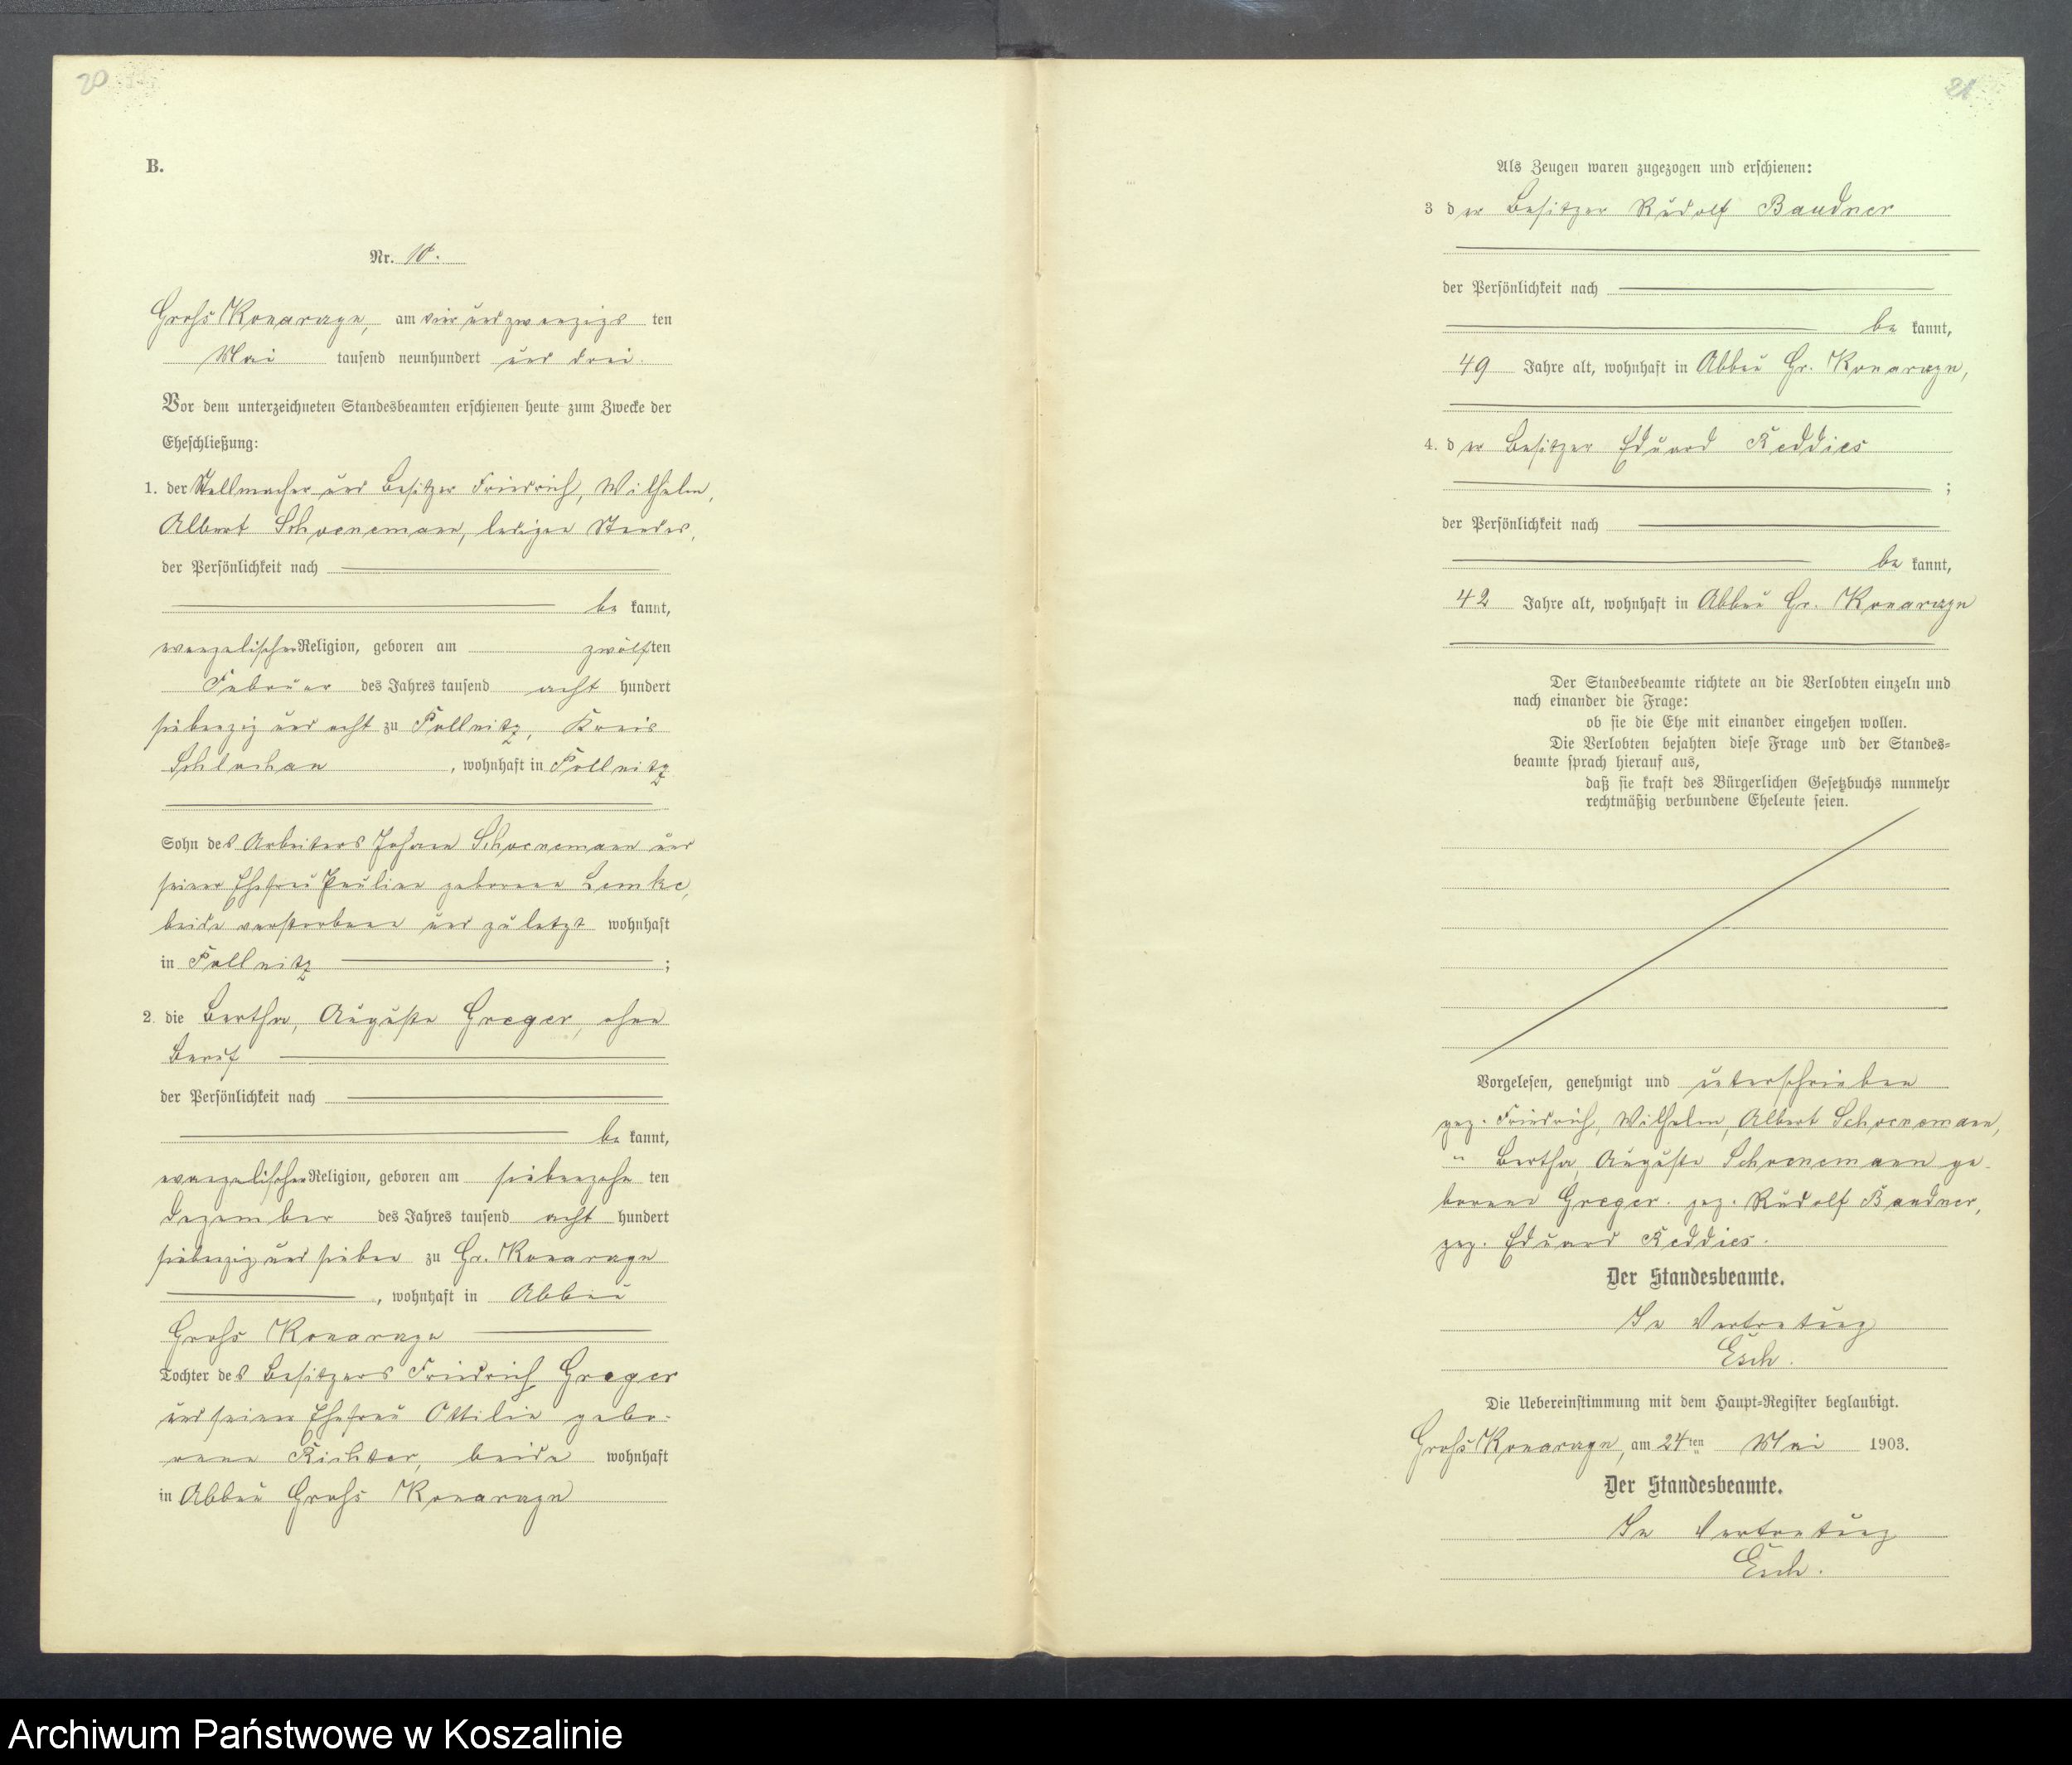 20
B.
Nr. 10.
Groß Konarzyn, am vier und zwanzigs ten
Mai tausend neunhundert und drei.
Vor dem unterzeichneten Standesbeamten erschienen heute zum Zwecke der
Eheschließung:
1. der Stellmacher und Besitzer Friedrich, Wilhelm,
Albert Schoenemann, ledigen Standes,
der Persönlichkeit nach
be kannt,
evangelischer Religion, geboren am zwölften
Februar des Jahres tausend acht hundert
siebenzig und acht zu Pollnitz, Kreis
Schlochau, wohnhaft in Pollnitz
Sohn des Arbeiters Johann Schoenemann und
seiner Ehefrau Pauline geborene Lemke,
beide verstorben und zuletzt wohnhaft
in Pollnitz ;
2. die Bertha, Auguste Greger, ohne
Beruf
der Persönlichkeit nach
be kannt,
evangelischer Religion, geboren am siebenzehn ten
Dezember des Jahres tausend acht hundert
siebenzig und sieben zu Gr. Konarzyn
, wohnhaft in Abbau
Groß Konarzyn
Tochter des Besitzers Friedrich Greger
und seiner Ehefrau Ottilie gebo-
rene Richter, beide wohnhaft
in Abbau Groß Konarzyn
21
Als Zeugen waren zugezogen und erschienen:
3 der Besitzer Rudolf Baudner
der Persönlichkeit nach
be kannt,
49 Jahre alt, wohnhaft in Abbau Gr. Konarzyn,
4. der Besitzer Eduard Reddies
;
der Persönlichkeit nach
be kannt,
42 Jahre alt, wohnhaft in Abbau Gr. Konarzyn
Der Standesbeamte richtete an die Verlobten einzeln und
nach einander die Frage:
ob sie die Ehe mit einander eingehen wollen.
Die Verlobten bejahten diese Frage und der Standes-
beamte sprach hierauf aus,
daß sie kraft des Bürgerlichen Gesetzbuchs nunmehr
rechtmäßig verbundene Eheleute seien.
Vorgelesen, genehmigt und unterschrieben
gez. Friedrich, Wilhelm, Albert Schoenemann,
" Bertha, Auguste Schoenemann ge-
borene Greger. gez. Rudolf Baudner,
gez. Eduard Reddies.
Der Standesbeamte.
In Vertretung
Esch.
Die Uebereinstimmung mit dem Haupt-Register beglaubigt.
Groß Konarzyn, am 24ten Mai 1903.
Der Standesbeamte.
In Vertretung
Esch.
Archiwum Państwowe w Koszalinie